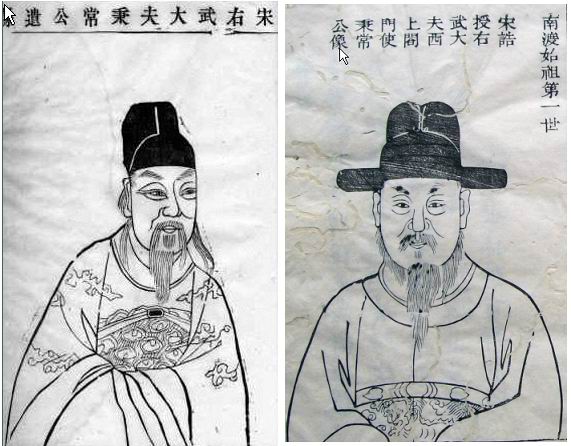 宋右武大夫秉常公遺
南渡始祖第一世
宋誥
授右
武大
夫西
上閤
門使
秉常
公像